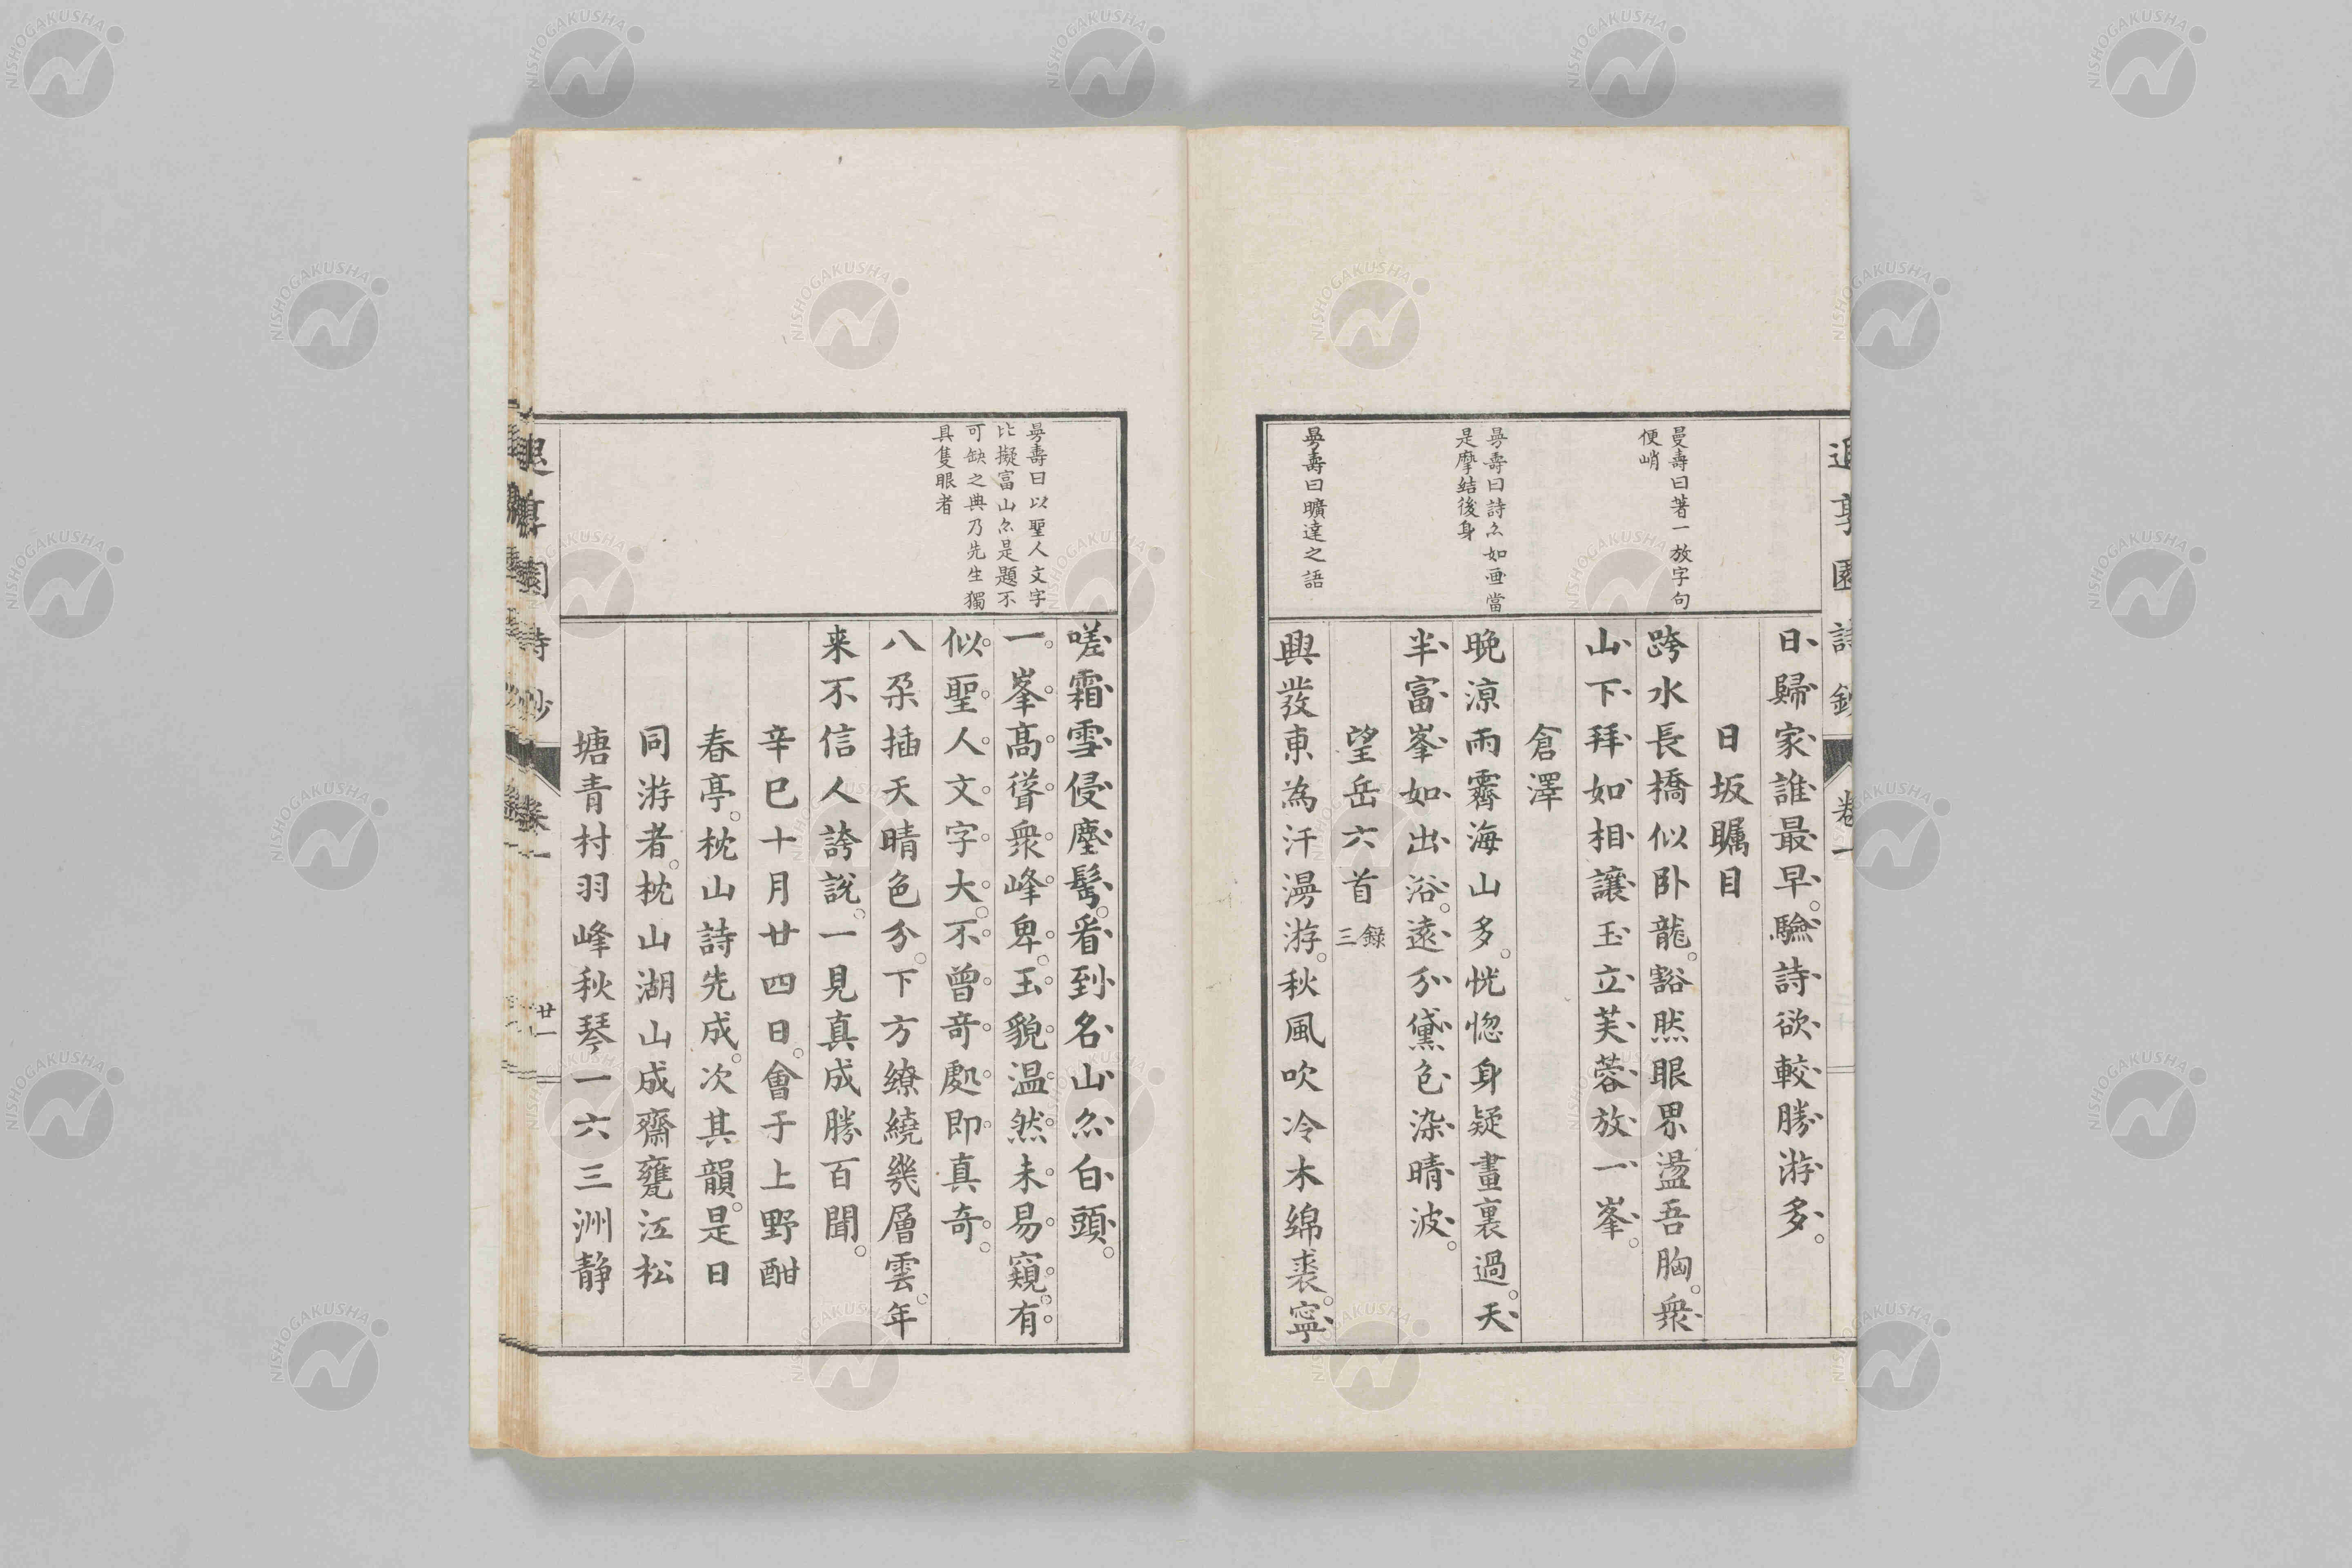 日歸家誰最早。驗詩欲較勝游多。
日坂矚目
跨水長橋似臥龍。豁然眼界盪吾胸。衆
山下拜如相讓玉立芙蓉放一峯。
倉澤
晩涼雨霽海山多。恍惚身疑畫裏過。天
半富峯如出浴。遠分黛色染晴波。
望岳六首 錄三
興發東為汗漫游。秋風吹冷木綿裘。寧
曼壽曰著一放字句
便峭
曼壽曰詩亦如画當
是摩結後身
曼壽曰曠達之語
嗟霜雪侵塵鬢。看到名山亦白頭。
一峯高聳衆峰卑。玉貌温然未易窺。有
似聖人文字大。不曾奇處即真奇。
八朶插天晴色分。下方繚繞幾層雲。年
来不信人誇說。一見真成勝百聞。
辛巳十月廿四日。會于上野酣
春亭。枕山詩先成。次其韻。是日
同游者。枕山湖山成齋甕江松
塘青村羽峰秋琴一六三洲静
曼壽曰以聖人文字
比擬富山亦是題不
可缺之典乃先生獨
具隻眼者
卷一
廿一
NISHOGAKUSHA